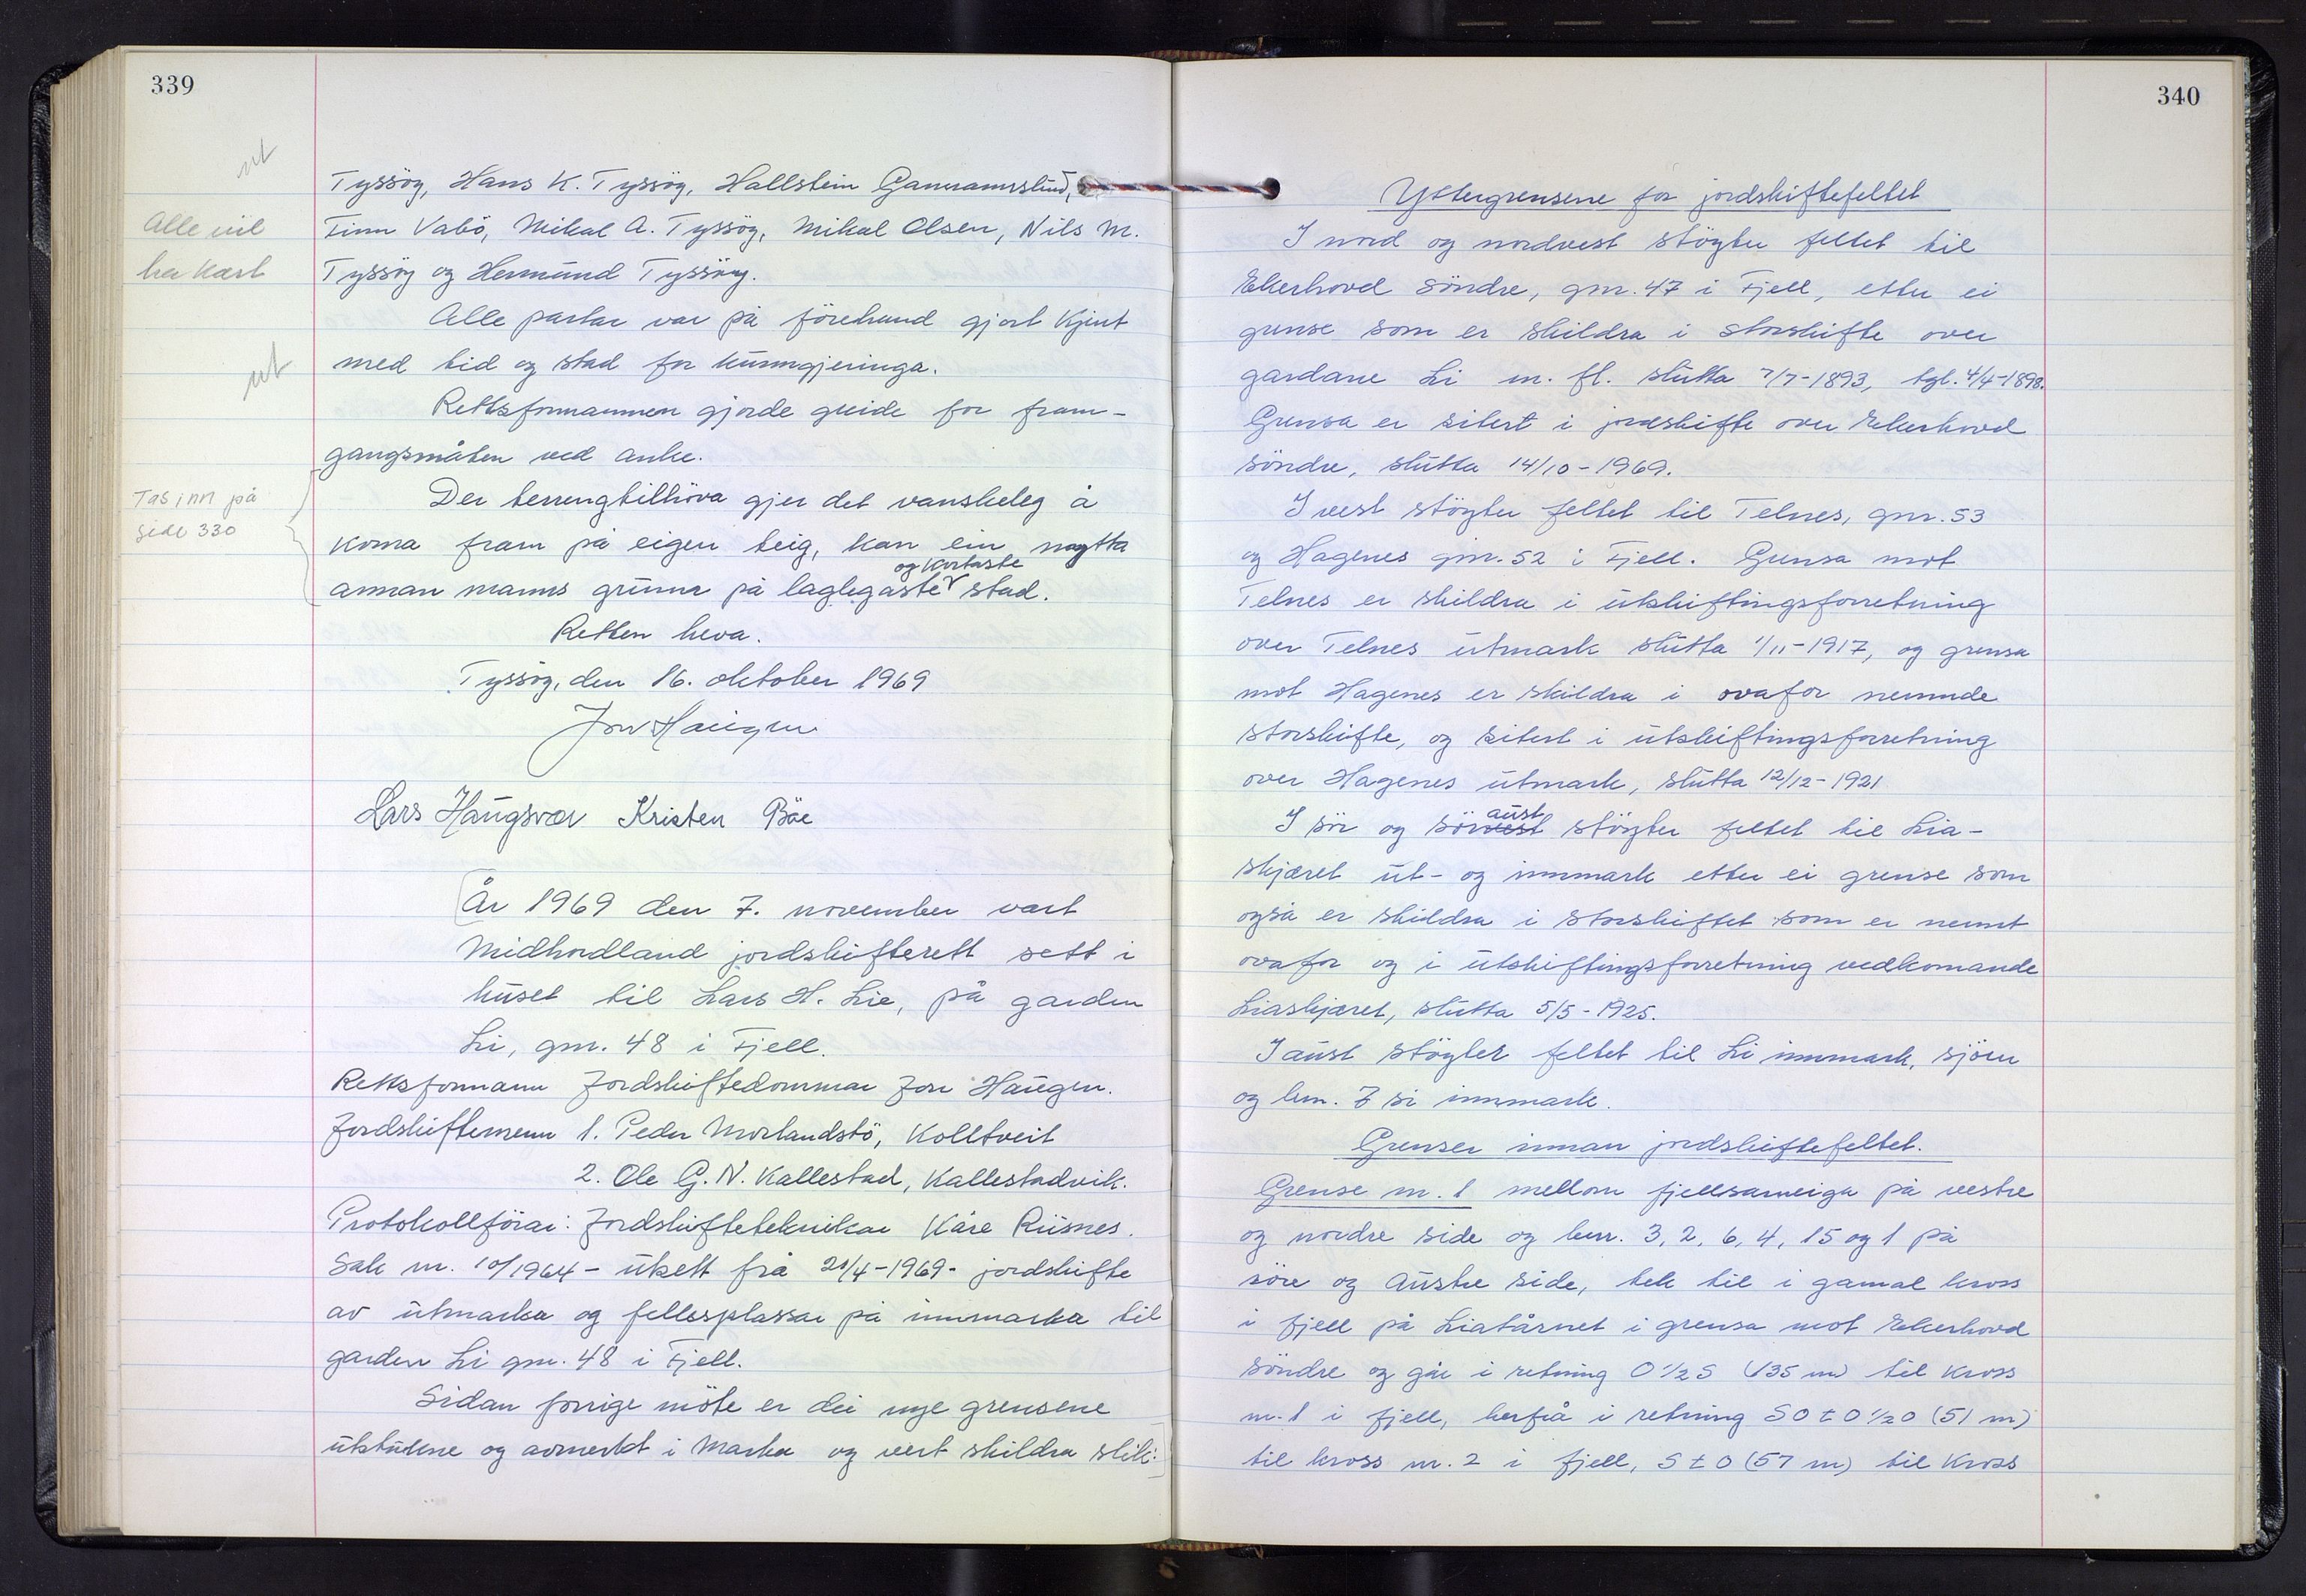 339
ut
Tyssöy, Hans K. Tyssöy, Hallstein Gammannslund,
Alle vil
ha kart
Finn Vabö, Mikal A. Tyssöy, Mikal Olsen, Nils M.
Tyssöy og Hermund Tyssöy.
Alle partar var på förehand gjort kjent
med tid og stad for kunngjeringa.
ut
Rettsformannen gjorde greide for fram-
gangsmåten ved anke.
Tas inn på
side 330
Der terrengtilhöva gjer det vanskeleg å
koma fram på eigen teig, kan ein nytta
annan manns grunn på laglegaste og kortaste stad.
Retten heva.
Tyssöy, den 16. oktober 1969
Jon Haugen
Lars Haugsvær Kristen Böe
År 1969 den 7. november vart
Midhordland jordskifterett sett i
huset til Lars H. Lie, på garden
Li, gnr. 48 i Fjell.
Rettsformann Jordskiftedommar Jon Haugen.
Jordskiftemenn 1. Peder Morlandstö, Kolltveit
2. Ole G. N. Kallestad, Kallestadvik.
Protokollförar: Jordskifteteknikar Kåre Riisnes.
Sak nr. 10/1964 - utsett frå 21/4-1969- jordskifte
av utmarka og fellesplassar på innmarka til
garden Li gnr. 48 i Fjell.
Sidan forrige möte er dei nye grensene
utstukne og avmerkt i marka og vert skildra slik:
340
Yttergrensene for jordskiftefeltet
I nord og nordvest stöyter feltet til
Ekerhovd Söndre, gnr. 47 i Fjell, etter ei
grense som er skildra i storskifte over
gardane Li m. fl. slutta 7/7-1893, tgl. 4/4-1898.
Grensa er sitert i jordskifte over Ekerhovd
söndre, slutta 14/10-1969.
I vest stöyter feltet til Telnes, gnr. 53
og Hagenes gnr. 52 i Fjell. Grensa mot
Telnes er skildra i utskiftingsforretning
over Telnes utmark slutta 1/11-1917, og grensa
mot Hagenes er skildra i ovafor nemnde
storskifte, og sitert i utskiftingsforretning
over Hagenes utmark, slutta 12/12-1921
I sör og söraust stöyter feltet til Lia-
skjæret ut- og innmark etter ei grense som
også er skildra i storskiftet som er nemnt
ovafor og i utskiftingsforretning vedkomande
Liaskjæret, slutta 5/5-1925.
I aust stöyter feltet til Li innmark, sjöen
og bnr. 7 si innmark.
Grenser innan jordskiftefeltet.
Grense nr. 1 mellom fjellsameiga på vestre
og nordre side og bnr. 3, 2, 6, 4, 15 og 1 på
söre og austre side, tek til i gamal kross
i fjell på Liatårnet i grensa mot Ekerhovd
söndre og går i retning O 1/2 S (135 m) til kross
nr. 1 i fjell, herfrå i retning S O t O 1/2 O (51 m)
til kross nr. 2 i fjell, S t O (57 m) til kross